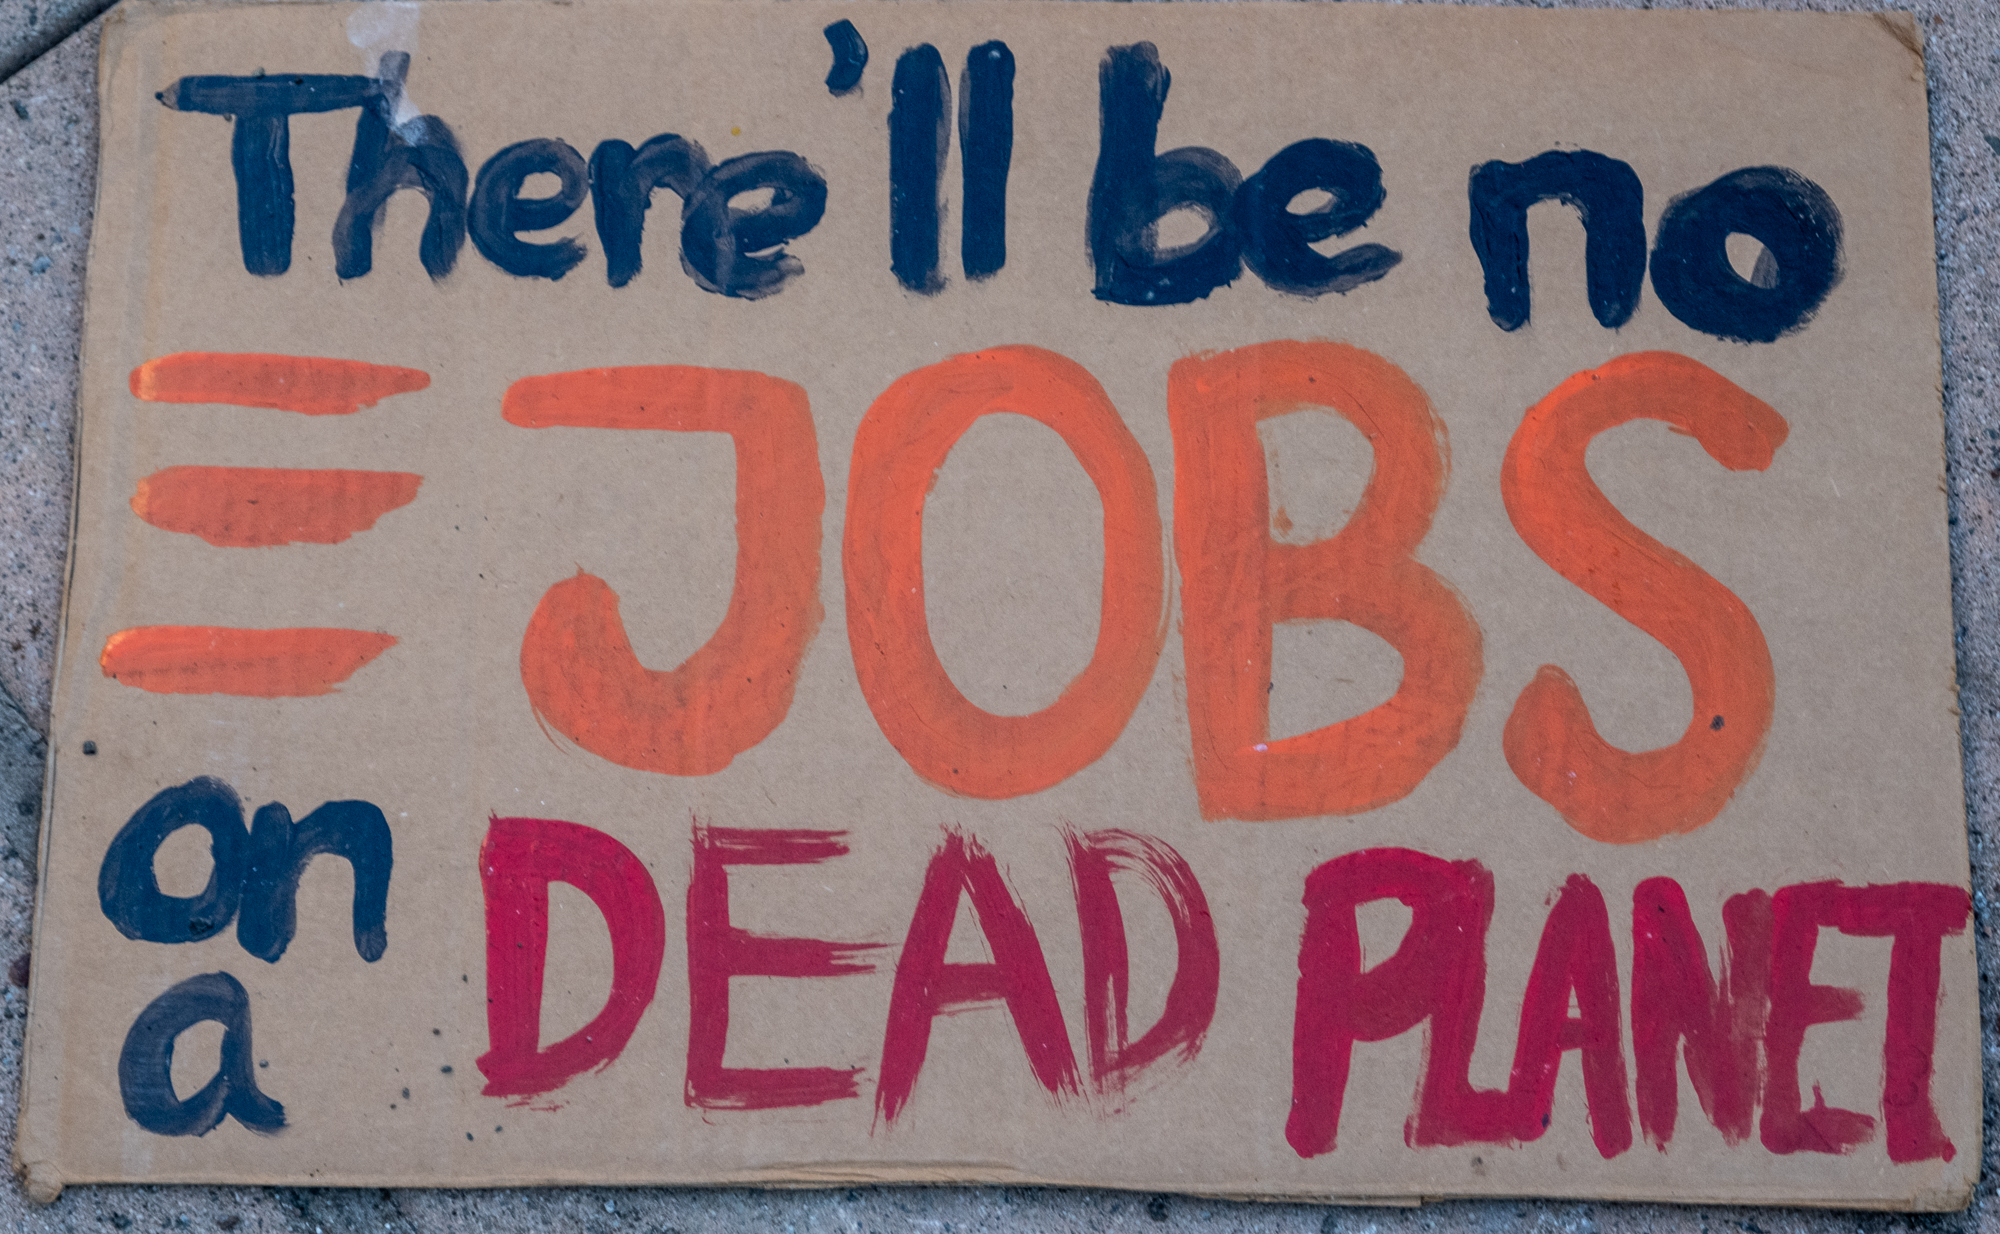 There'll be no
JOBS
on
a DEAD PLANET